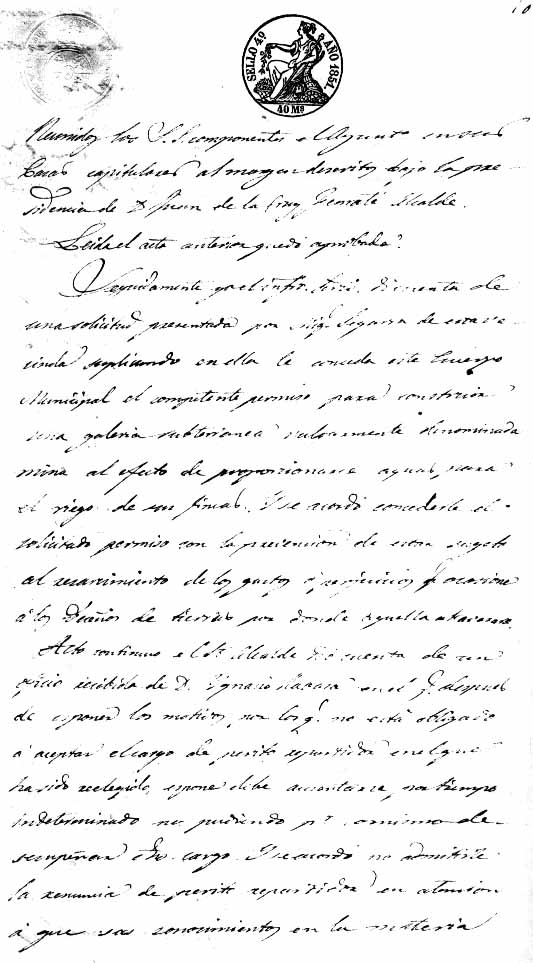 10
SELLO 4º AÑO 1851.
40 Ms
Reunidos los S.S. componentes el Ayunto en sus
Casas capitulares al margen descritos bajo la pre-
sidencia de D. Juan de la Cruz Alcalde.
Leida el acta anterior quedó aprobada.
Seguidamente yo el infro. Srio. di cuenta de
una solicitud presentada por Migl. Segarra de esta ve-
cindad suplicando en ella le conceda este Cuerpo
Municipal el competente permiso para construir
una galeria subterranea vulgarmente denominada
mina al efecto de proporcionarse aguas para
el riego de sus fincas. Y se acordó concederle el
solicitado permiso con la prevencion de estar sugeto
al resarcimiento de los gastos ó perjuicios q. ocasione
á los Dueños de tierras por donde aquella atraviese.
Acto continuo el Sr. Alcalde dió cuenta de un
oficio recibido de D. Ygnacio en el q. despues
de esponer los motivos por los q. no está obligado
á aceptar el cargo de perito repartidor en el que
ha sido reelegido, espone debe ausentarse por tiempo
indeterminado no pudiendo pr. lo mismo de-
sempeñar dho. cargo. Y se acordó no admitirle
la renuncia de perito repartidor en atencion
á que sus conocimientos en la materia